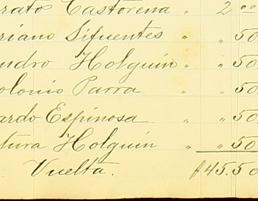 rato Castorena " 2.00
riano Sifuentes " " 50
ndro Holguin " " 50
olonio Parra " " 50
ardo Espinosa " " 50
tura Holguin " " 50
Vuelta. $45.50